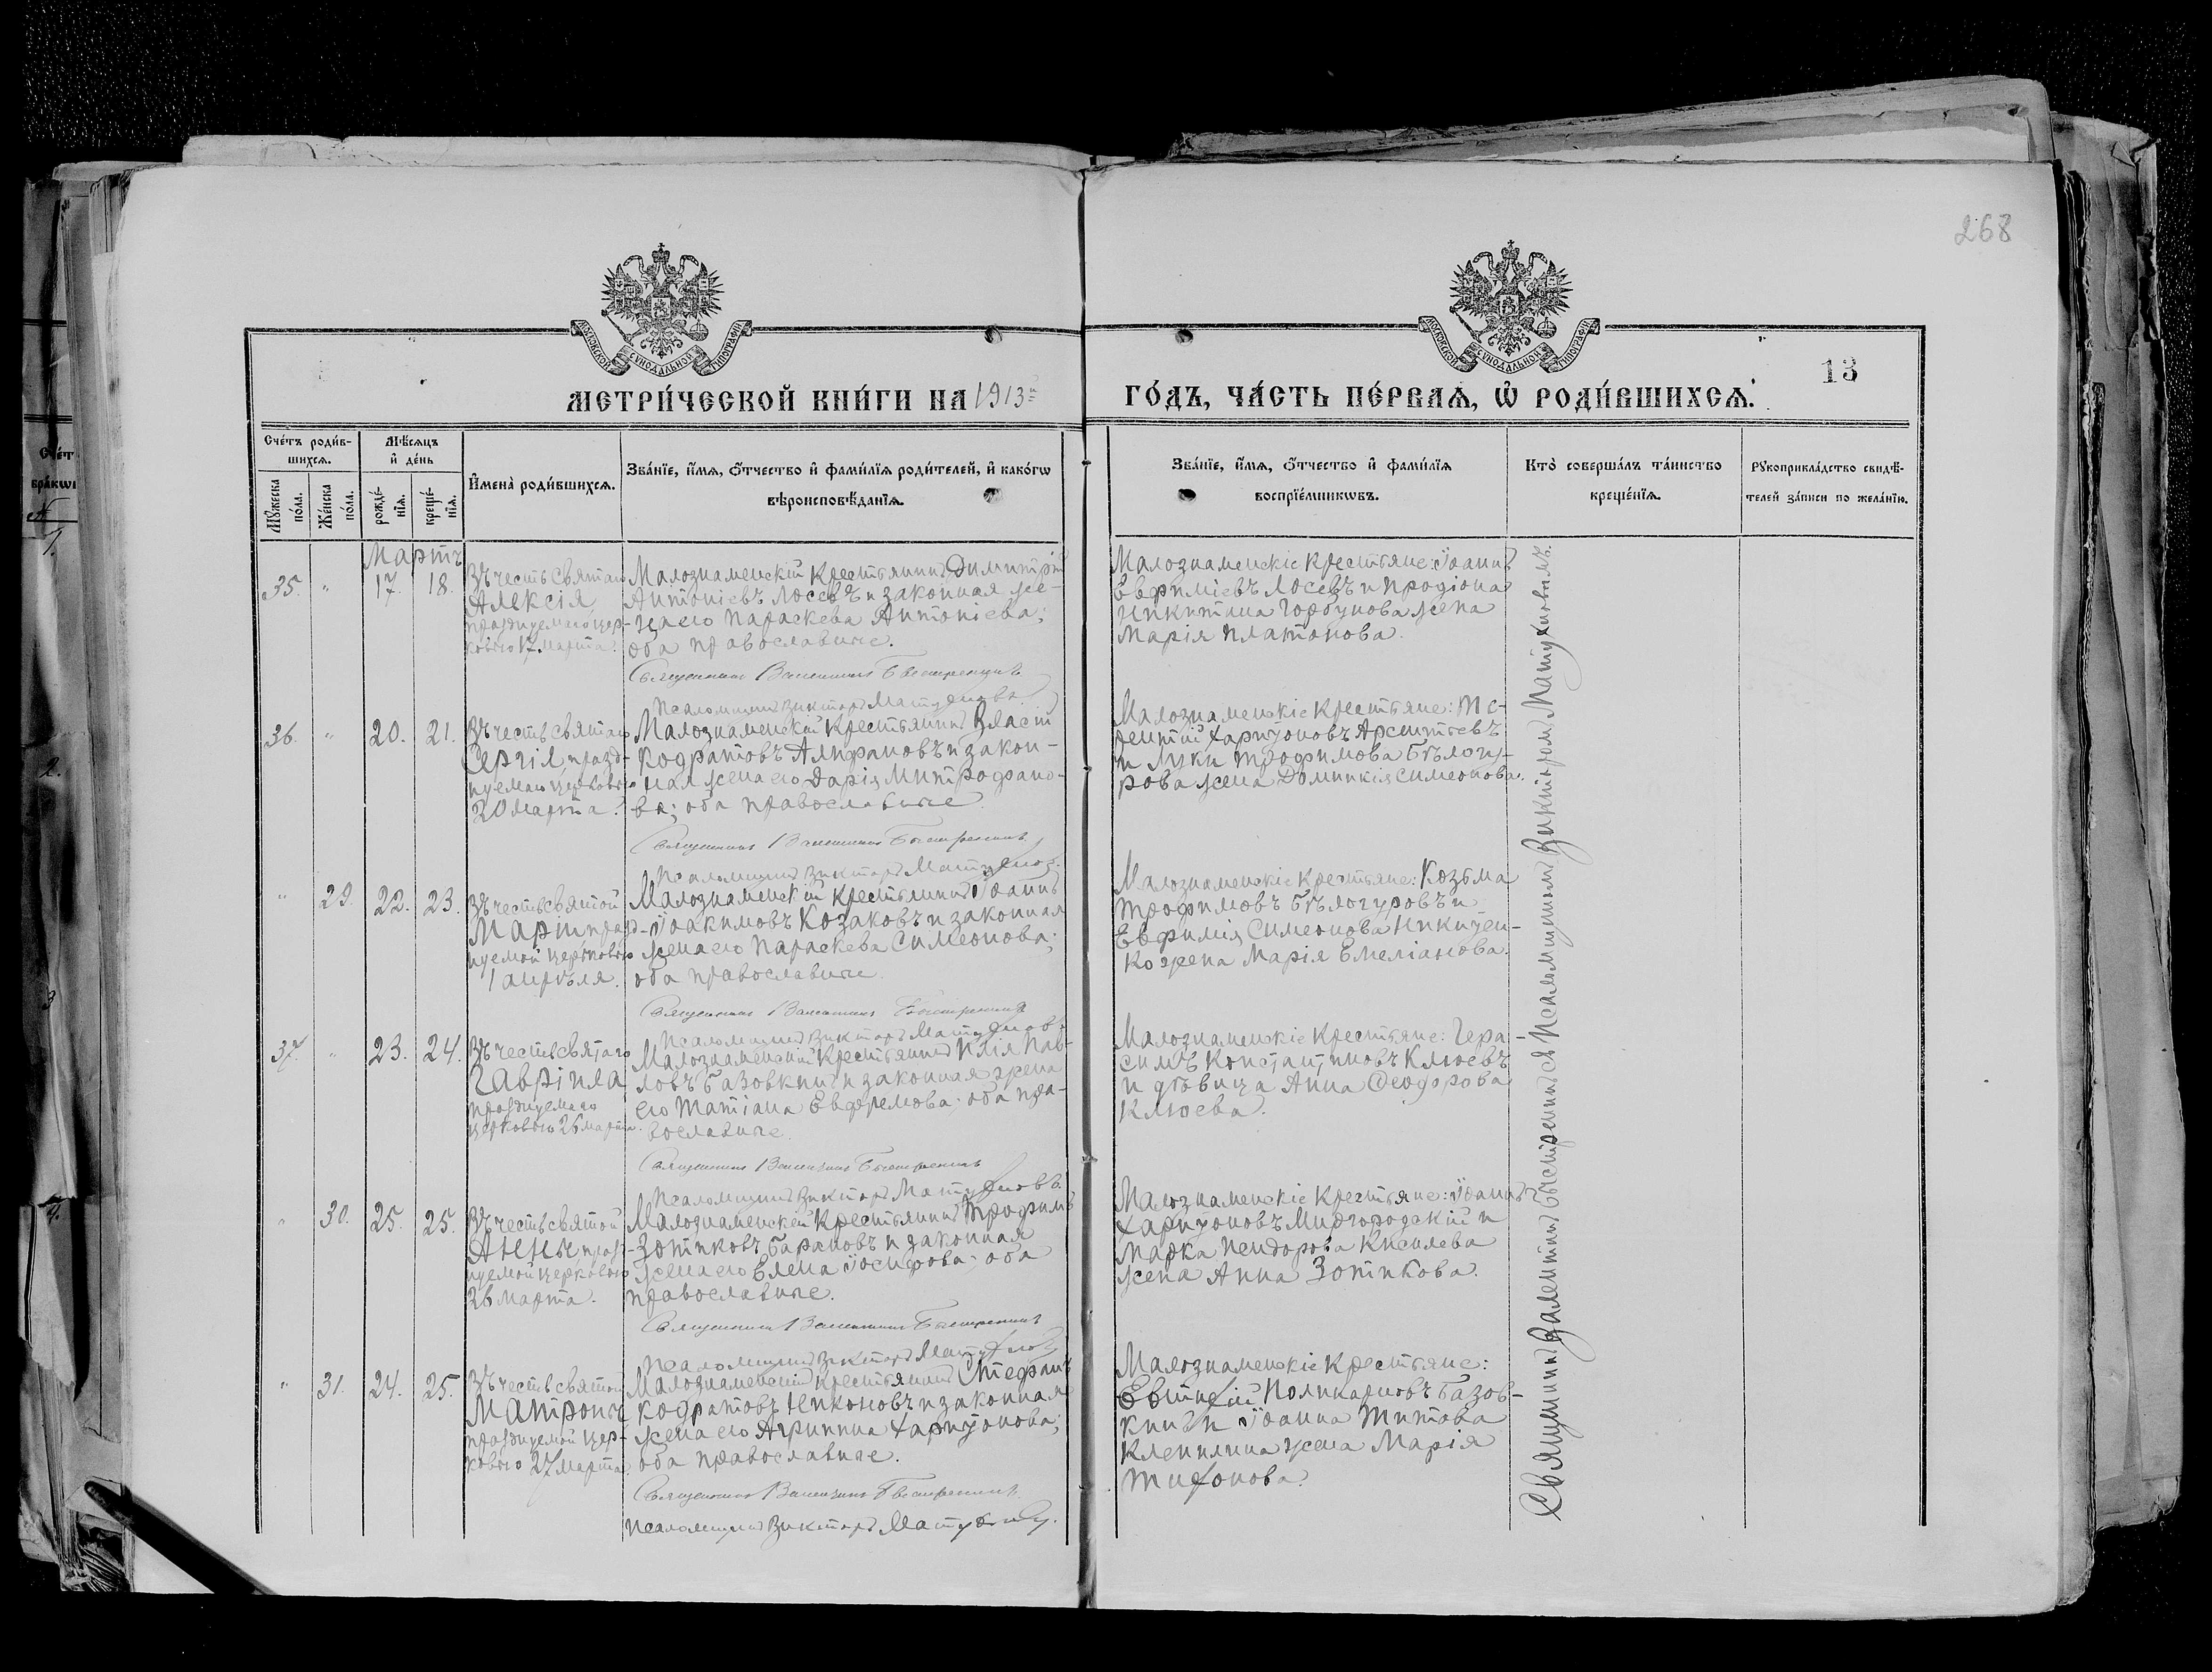 268
МОСКОВСКОЙ СѴНОДАЛЬНОЙ ТИПОГРАФІИ
МОСКОВСКОЙ СѴНОДАЛЬНОЙ ТИПОГРАФІИ
13
МЕТРИ́ЧЕСКОЙ КНИ́ГИ НА 1913
ГО́ДЪ, ЧА́СТЬ ПЕ́РВАѦ, Ѽ РОДИ́ВШИХСѦ.
Сче́тъ роди́в-
шихсѧ.
Мѣ́сѧцъ
и҆ де́нь
Мꙋ́жеска
по́ла.
Же́нска
по́ла.
рожде́-
нїѧ.
креще́-
нїѧ.
И҆мена̀ роди́вшихсѧ.
Зва́нїе, и҆́мѧ, ѻ҆́тчество и҆ фамѝлїѧ роди́телей, и҆ како́гѡ
вѣроисповѣ́данїѧ.
Зва́нїе, и҆́мѧ, ѻ҆́тчество и҆ фами́лїѧ
воспрїе́мникѡвъ.
Кто̀ соверша́лъ та́инство
креще́нїѧ.
Рꙋкоприкла́дство свидѣ́-
телей за́писи по жела́нїю.
Мартъ
35. " 17. 18.
Въ честь святаго
Алексія,
празднуемаго цер-
ковью 17 марта.
Малознаменскій крестьянинъ Димитрій
Антоніевъ Лосевъ и законная же-
на его Параскева Антоніева;
оба православные.
Священникъ Валентинъ Быстренинъ
Псаломщикъ Викторъ Матухновъ.
Малознаменскіе крестьяне: Іоаннъ
Евфиміевъ Лосевъ и Иродіона
Никитина Горбунова жена
Марія Платонова.
36. " 20. 21.
Въ честь святаго
Сергія празд-
нуемаго церковью
20 марта.
Малознаменскій крестьянинъ Власій
Кодратовъ Алифановъ и закон-
ная жена его Дарія Митрофано-
ва; оба православные.
Священникъ Валентинъ Быстренинъ.
Псаломщикъ Викторъ Матухновъ.
Малознаменскіе крестьяне: Те-
рентій Харитоновъ Арситовъ
и Луки Трофимова Бѣлогу-
рова жена Домникія Симеонова.
" 29. 22. 23.
Въ честь святой
Маріи празд-
нуемой церковью
1 апрѣля.
Малознаменскій крестьянинъ Іоаннъ
Іоакимовъ Козаковъ и законная
жена его Параскева Симеонова;
оба православные.
Священникъ Валентинъ Быстренинъ
Псаломщикъ Викторъ Матухновъ.
Малознаменскіе крестьяне: Козьма
Трофимовъ Бѣлогуровъ и
Евфимія Симеонова Никитен-
ко жена Марія Емеліанова.
37. " 23. 24.
Въ честь святаго
Гавріила
празднуемаго
церковью 26 марта.
Малознаменскій крестьянинъ Илія Пав-
ловъ Базовкинъ и законная жена
его Татіана Евфремова; оба пра-
вославные.
Священникъ Валентинъ Быстренинъ
Псаломщикъ Викторъ Матухновъ.
Малознаменскіе крестьяне: Гера-
симъ Константиновъ Клюевъ
и дѣвица Анна Феодорова
Клюева.
" 30. 25. 25.
Въ честь святой
Анны празд-
нуемой церковью
26 марта.
Малознаменскій крестьянинъ Трофимъ
Зотиковъ Барановъ и законная
жена его Елена Іосифова; оба
православные.
Священникъ Валентинъ Быстренинъ
Псаломщикъ Викторъ Матухновъ
Малознаменскіе крестьяне: Іоаннъ
Харитоновъ Миргородскій и
Марка Исидорова Киселева
жена Анна Зотикова.
" 31. 24. 25.
Въ честь святой
Матроны
празднуемой цер-
ковью 27 марта.
Малознаменскій крестьянинъ Стефанъ
Кодратовъ Никоновъ и законная
жена его Агриппина Харитонова;
оба православные.
Священникъ Валентинъ Быстренинъ.
Псаломщикъ Викторъ Матухновъ.
Малознаменскіе крестьяне:
Евтихій Поликарповъ Базов-
кинъ и Іоанна Титова
Клепилина жена Марія
Тихонова.
Священникъ Валентинъ Быстренинъ съ Псаломщикомъ Викторомъ Матухновымъ.